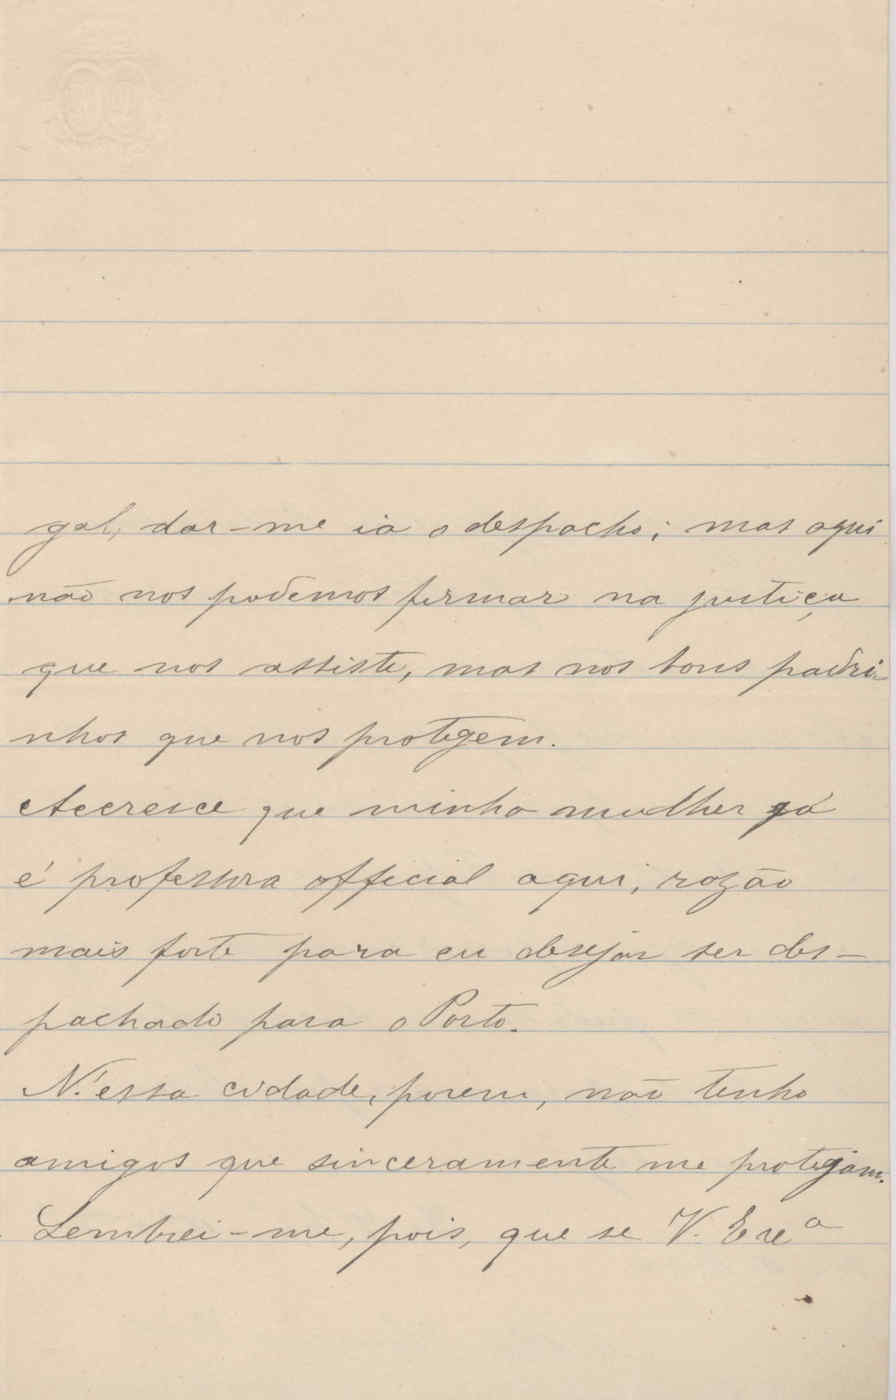 gal, dar-me ia o despacho; mas aqui
não nos podemos firmar na justiça
que nos assiste, mas nos bons padri-
nhos que nos protegem.
Accresce que minha mulher já
é professora official aqui, razão
mais forte para eu desejar ser des-
pachado para o Porto.
N'essa cidade, porem, não tenho
amigos que sinceramente me protejam.
Lembrei-me, pois, que se V. Exª